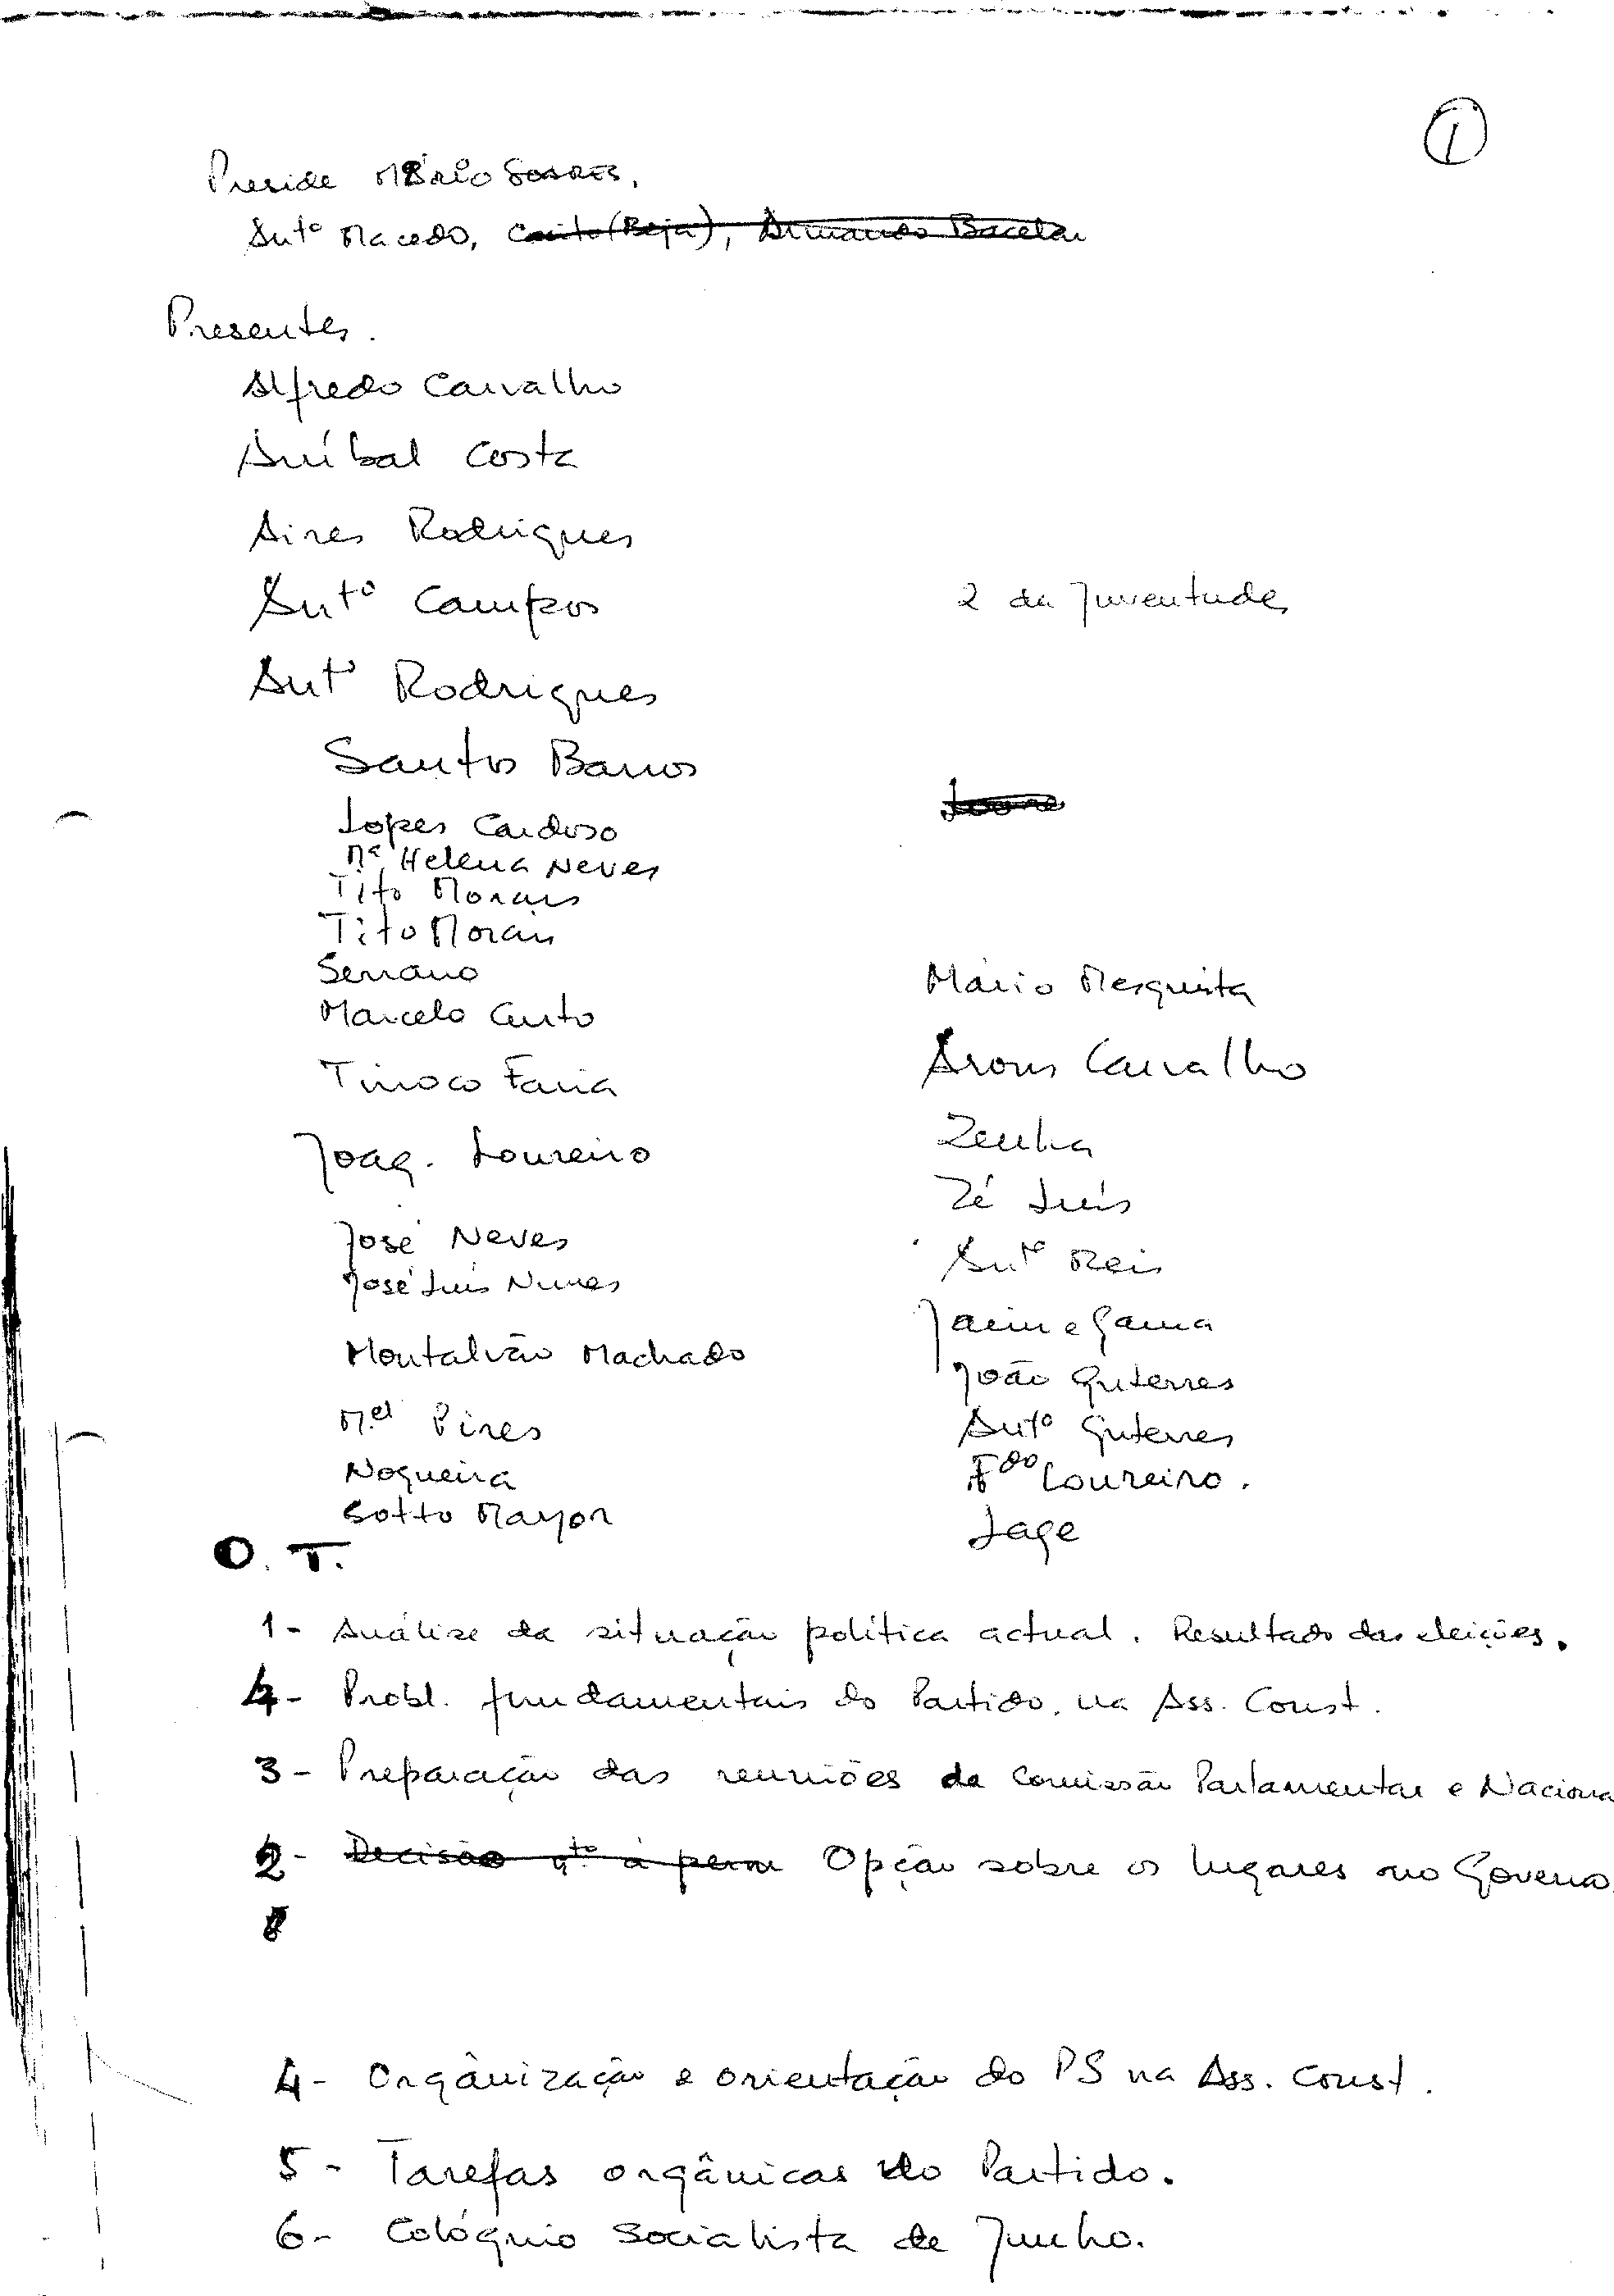 1
Preside MÁRIO SOARES,
Antº Macedo, Couto (Beja), Armando Bacelar
Presentes.
Alfredo Carvalho
Aníbal Costa
Aires Rodrigues
Antº Campos
2 da Juventude
Antº Rodrigues
Santos Barros
Lopes Cardoso
Mª Helena Neves
Tito Morais
Tito Morais
Serrano
Marcelo Curto
Tinoco Faria
Joaq. Loureiro
José Neves
José Luís Nunes
Montalvão Machado
Mel Pires
Nogueira
Sotto Mayor
Mário Mesquita
Arons Carvalho
Zenha
Zé Luís
Antº Reis
Jaime Gama
João Guterres
Antº Guterres
Fdo Loureiro.
Lage
O. T.
1- Análise da situação política actual. Resultado das eleições.
4- Probl. fundamentais do Partido, na Ass. Const.
3- Preparação das reuniões da Comissão Parlamentar e Naciona
2- Decisão qto à perm Opção sobre os lugares no Governo.
4- Orgânização e orientação do PS na Ass. Const.
5- Tarefas orgânicas do Partido.
6- Colóquio Socialista de Junho.